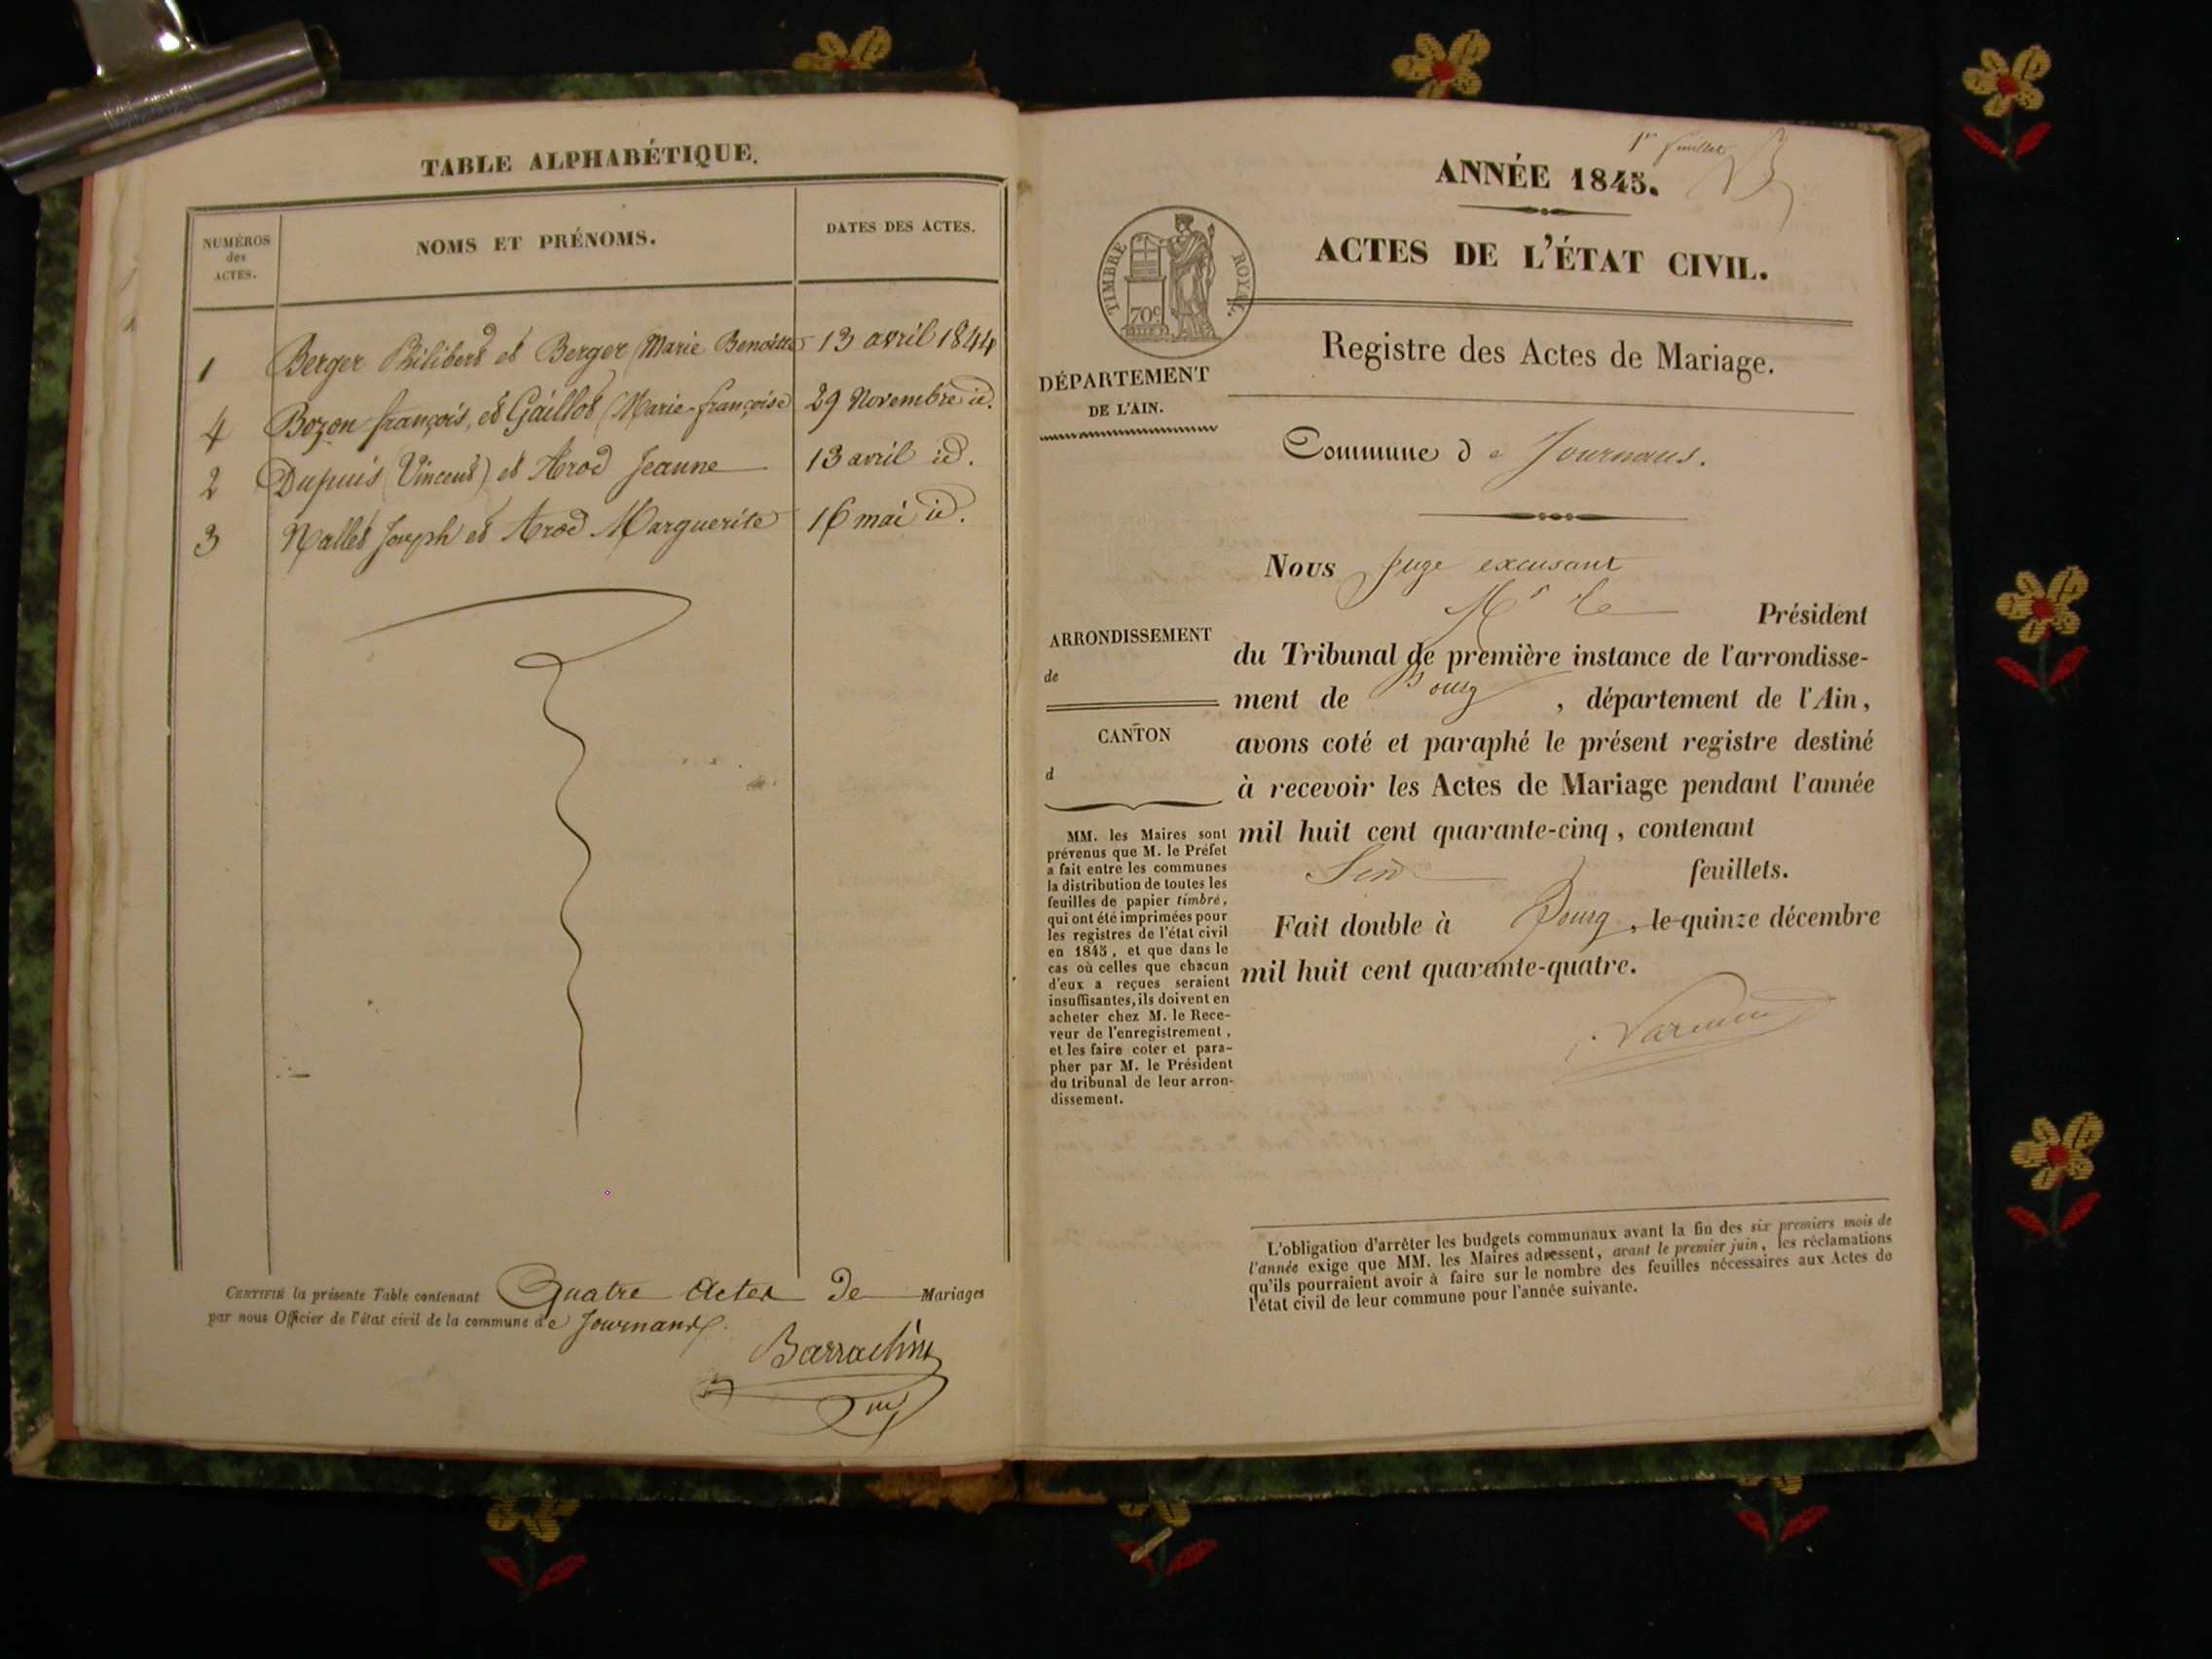 TABLE ALPHABÉTIQUE.
NUMÉROS
des
ACTES.
NOMS ET PRÉNOMS.
DATES DES ACTES.
1 Berger Philibert et Berger (Marie Benoitte 13 avril 1844
4 Bozon françois, et Gaillot (Marie-françoise) 29 Novembre id.
2 Dupuis (Vincent) et Arod Jeanne 13 avril id.
3 Nallet Joseph et Arod Marguerite 16 mai id.
CERTIFIÉ la présente Table contenant Quatre Actes De Mariages
par nous Officier de l'état civil de la commune de Journans.
1er feuillet
ANNÉE 1845.
ACTES DE L'ÉTAT CIVIL.
TIMBRE ROYAL.
70c
Registre des Actes de Mariage.
DÉPARTEMENT
DE L'AIN.
Commune de Journans.
Nous Juge excusant
Mr le Président
ARRONDISSEMENT
de
du Tribunal de première instance de l'arrondisse-
ment de Bourg, département de l'Ain,
CANTON
d
avons coté et paraphé le présent registre destiné
à recevoir les Actes de Mariage pendant l'année
mil huit cent quarante-cinq, contenant
feuillets.
Fait double à Bourg, le quinze décembre
mil huit cent quarante-quatre.
MM. les Maires sont
prévenus que M. le Préfet
a fait entre les communes
la distribution de toutes les
feuilles de papier timbré,
qui ont été imprimées pour
les registres de l'état civil
en 1845, et que dans le
cas où celles que chacun
d'eux a reçues seraient
insuffisantes, ils doivent en
acheter chez M. le Rece-
veur de l'enregistrement,
et les faire coter et para-
pher par M. le Président
du tribunal de leur arron-
dissement.
L'obligation d'arrêter les budgets communaux avant la fin des six premiers mois de
l'année exige que MM. les Maires adressent, avant le premier juin, les réclamations
qu'ils pourraient avoir à faire sur le nombre des feuilles nécessaires aux Actes de
l'état civil de leur commune pour l'année suivante.